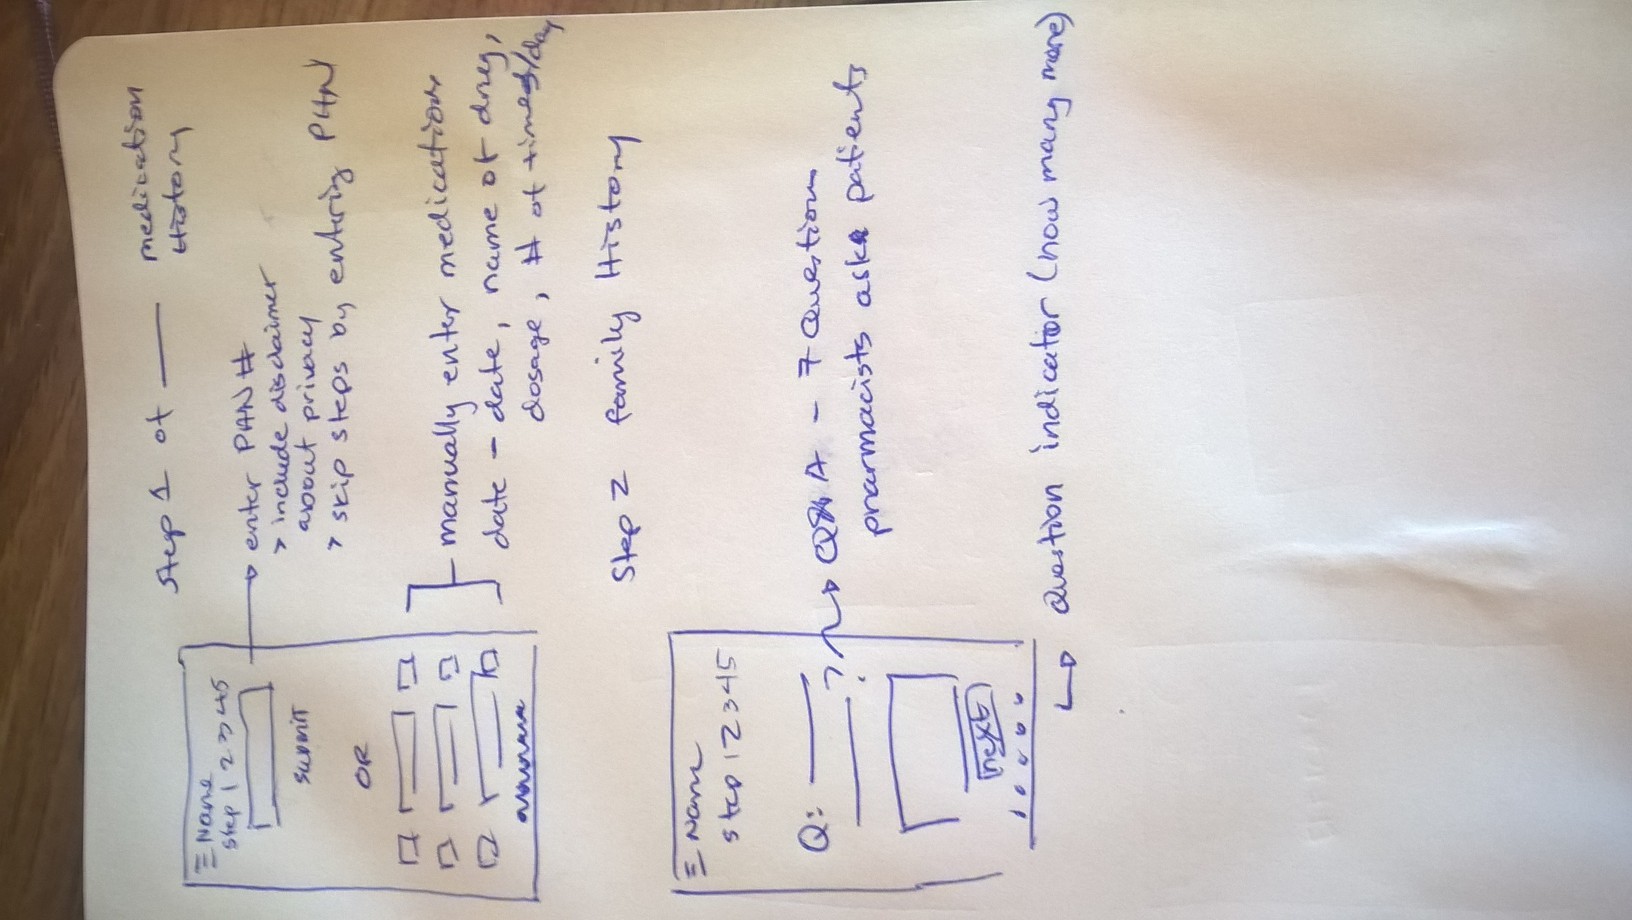 Step 1 of ___ medication
History
Name
Step 1 2 3 4 5
submit
OR
→ enter PHN #
> include disclaimer
about privacy
> skip steps by entering PHN
manually enter medications
date - date, name of drug,
dosage, # of times/day
Step 2 family History
Name
step 1 2 3 4 5
Q: ___
___?
next
→ Q&A - 7 Questions
pharmacists ask patients
→ Question indicator (how many more)